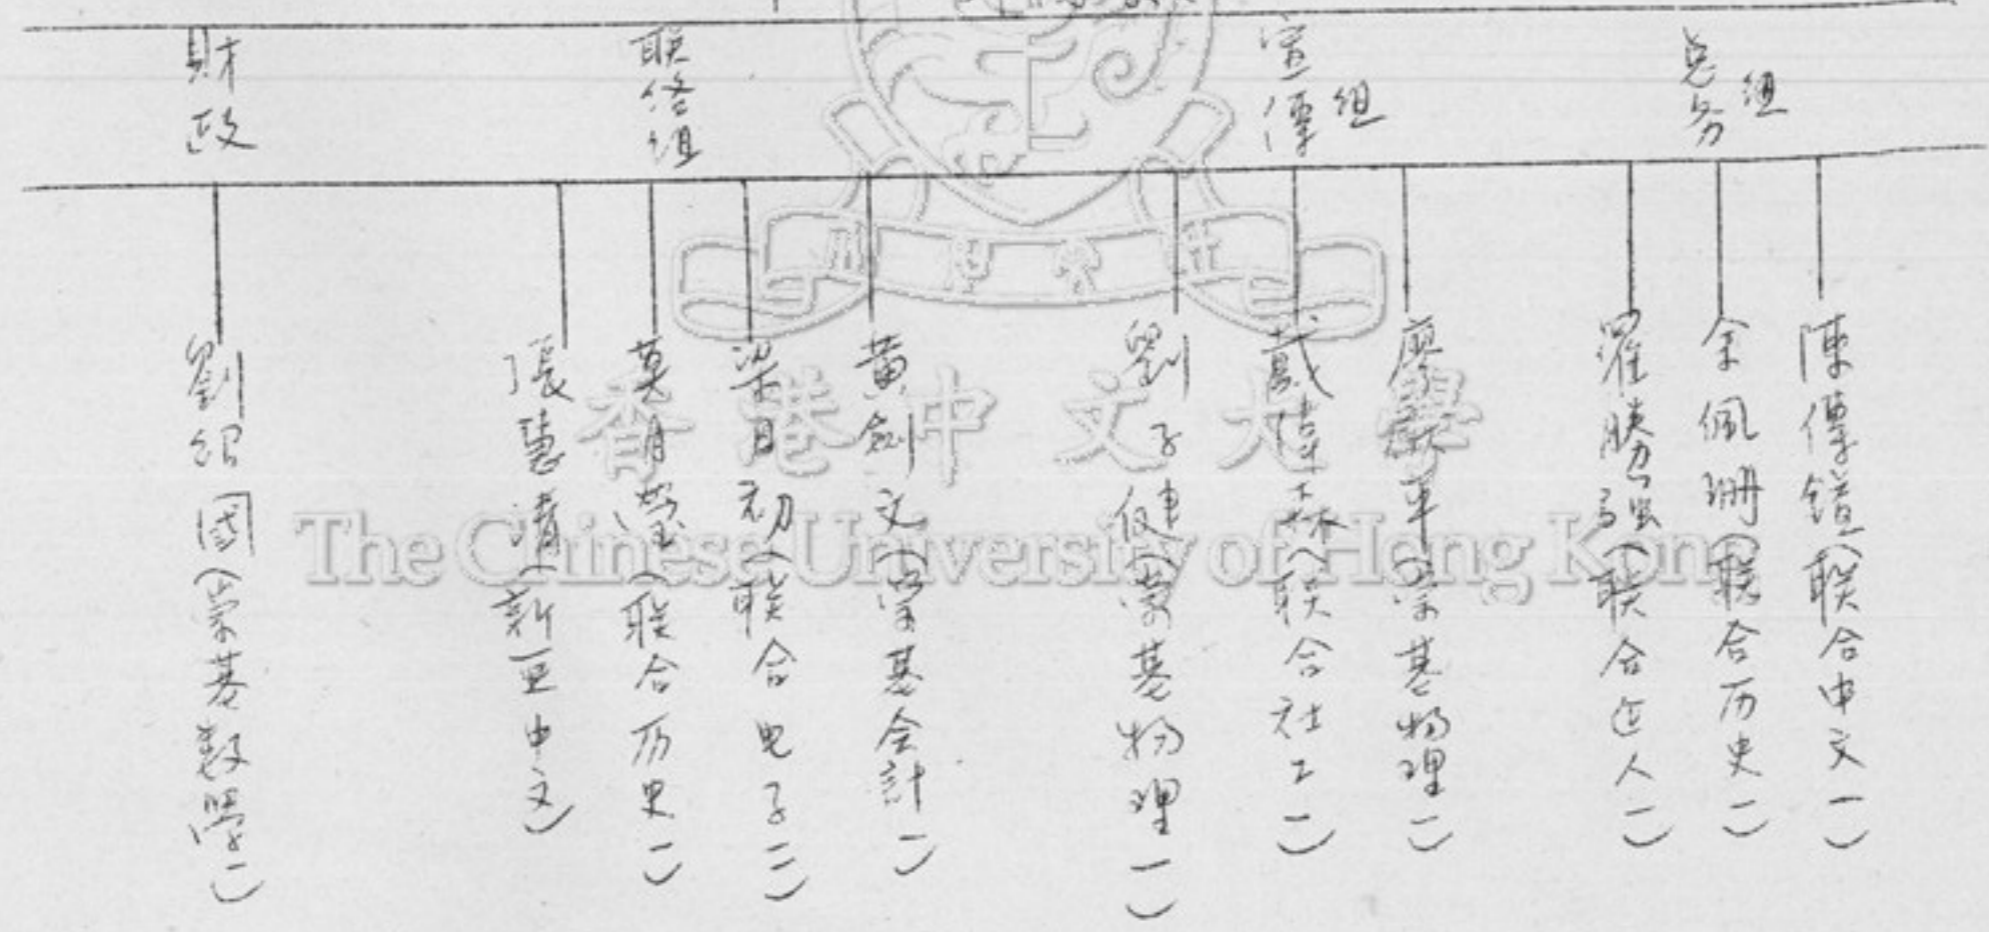 总务組
宣傳組
联络组
財政
陳傳鍇（联合中文一）
余佩珊（联合历史一）
羅勝强（联合迬人一）
廖 平（崇基物理一）
戴偉森（联合社工一）
劉子健（崇基物理一）
黃劍文（崇基会計一）
梁日初（联合电子二）
莫月瑩（联合历史二）
張慧清（新亚中文）
劉紹國（崇基数學一）
香港中文大學
The Chinese University of Hong Kong